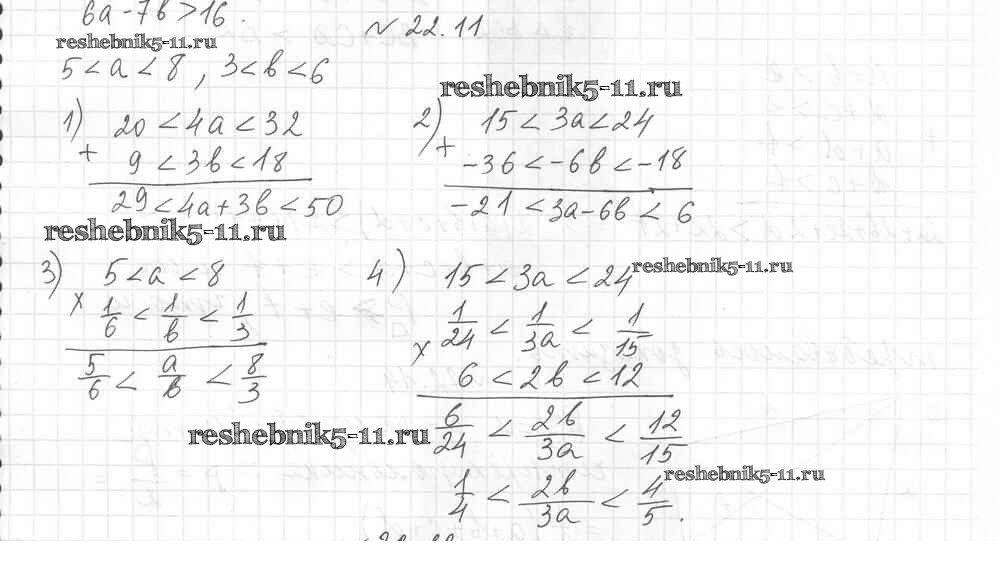 6a - 7b > 16.
№ 22.11
reshebnik5-11.ru
5 < a < 8 , 3 < b < 6
reshebnik5-11.ru
1) 20 < 4a < 32
+ 9 < 3b < 18
29 < 4a + 3b < 50
2) 15 < 3a < 24
+ -36 < -6b < -18
-21 < 3a - 6b < 6
reshebnik5-11.ru
3) 5 < a < 8
x 1/6 < 1/b < 1/3
5/6 < a/b < 8/3
4) 15 < 3a < 24
reshebnik5-11.ru
1/24 < 1/3a < 1/15
x 6 < 2b < 12
6/24 < 2b/3a < 12/15
reshebnik5-11.ru
1/4 < 2b/3a < 4/5.
reshebnik5-11.ru